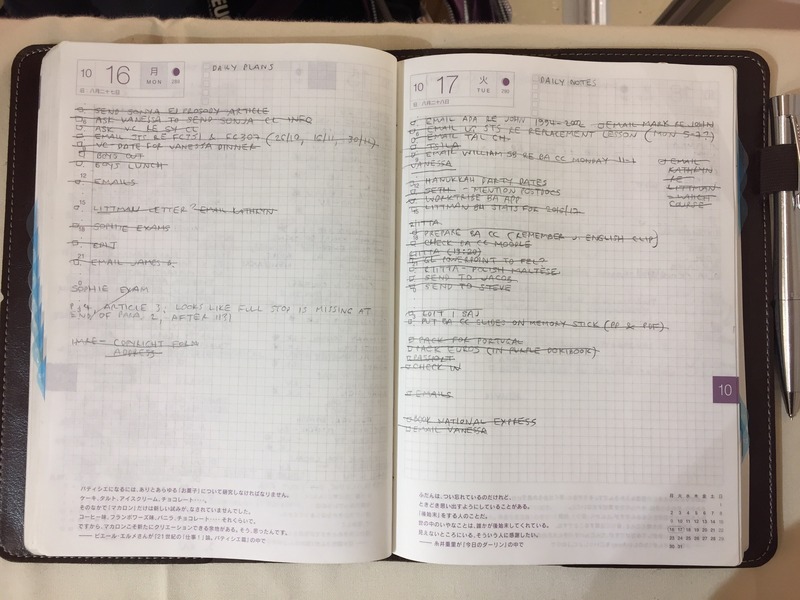 10 16 月 MON 289
旧 八月二十七日
DAILY PLANS
SEND SONYA EJ PROSODY ARTICLE
ASK VANESSA TO SEND SONJA CC INFO
ASK VC RE SV CC
EMAIL JTS RE FC251 & FC307 (25/10, 16/11, 30/11)
VC DATE FOR VANESSA DINNER
BOYS OUT
BOYS LUNCH
12
EMAILS
15
LITTMAN LETTER? EMAIL KATHRYN
18
SOPHIE EXAMS
EPIJ
21
EMAIL JAMES
SOPHIE EXAM
ARTICLE 3: LOOKS LIKE FULL STOP IS MISSING AT
END OF PARA 2, AFTER
COPYRIGHT FORM
ADDRESS
パティシエになるには、ありとあらゆる「お菓子」について研究しなければなりません。
ケーキ、タルト、アイスクリーム、チョコレート・・・・。
そのなかで「マカロン」だけは新しい試みが、なされていませんでした。
コーヒー味、フランボワーズ味、バニラ、チョコレート・・・それくらいで。
ですから、マカロンこそ新たにクリエーションできる余地がある。そう、思ったんです。
── ピエール・エルメさんが『21世紀の「仕事!」論。パティシエ篇』の中で
10 17 火 TUE 290
旧 八月二十八日
DAILY NOTES
EMAIL ADA RE JOHN 1994-2002 EMAIL MARK RE JOHN
EMAIL STS RE REPLACEMENT LESSON (MON 5-27)
EMAIL TALICH
TSILA
EMAIL WILLIAM SB RE BA CC MONDAY 11-1
VANESSA
EMAIL
KATHRYN
RE
LITTMAN
WATCH
COURSE
HANUKKAH PARTY DATES
SETH - MENTION POSTDOCS
WORKTRIBE BA APP
LITTMAN BH STATS FOR 2016/17
PREPARE BA CC (REMEMBER ENGLISH CLIP)
CHECK BA CC MODULE
POWERPOINT TO
POLISH MALTESE
SEND TO JACOB
SEND TO STEVE
EDIT 1 BAJ
PUT BA CC SLIDES ON MEMORY STICK (PP & PDF)
PACK FOR PORTUGAL
PACK EUROS (IN PURPLE DOKIBOOK)
PASSPORT
CHECK IN
EMAILS
BOOK NATIONAL EXPRESS
EMAIL VANESSA
10
ふだんは、つい忘れているのだけれど、
ときどき思い出すようにしていることがある。
「後始末」をする人のことだ。
世の中のいやなことは、誰かが後始末してくれている。
見えないところにいる、そういう人に感謝したい。
── 糸井重里が『今日のダーリン』の中で
月 火 水 木 金 土 日
1
2 3 4 5 6 7 8
9 10 11 12 13 14 15
16 17 18 19 20 21 22
23 24 25 26 27 28 29
30 31